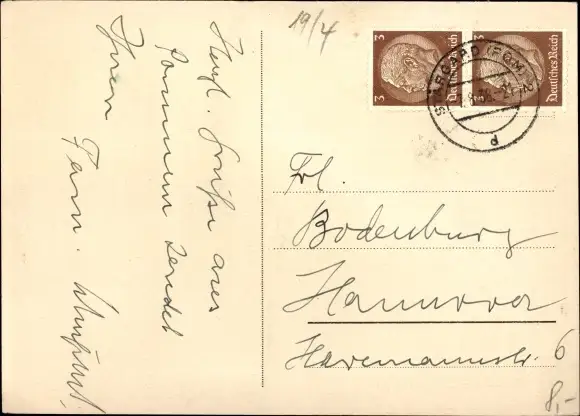 19/4
Herzl. Grüße aus
Pommern sendet
Ihnen
Fam.
3
Deutsches Reich
3
Deutsches Reich
STARGARD (POM)
d
Frl.
Bodenburg
Hannover
Havemannstr. 6
8,-